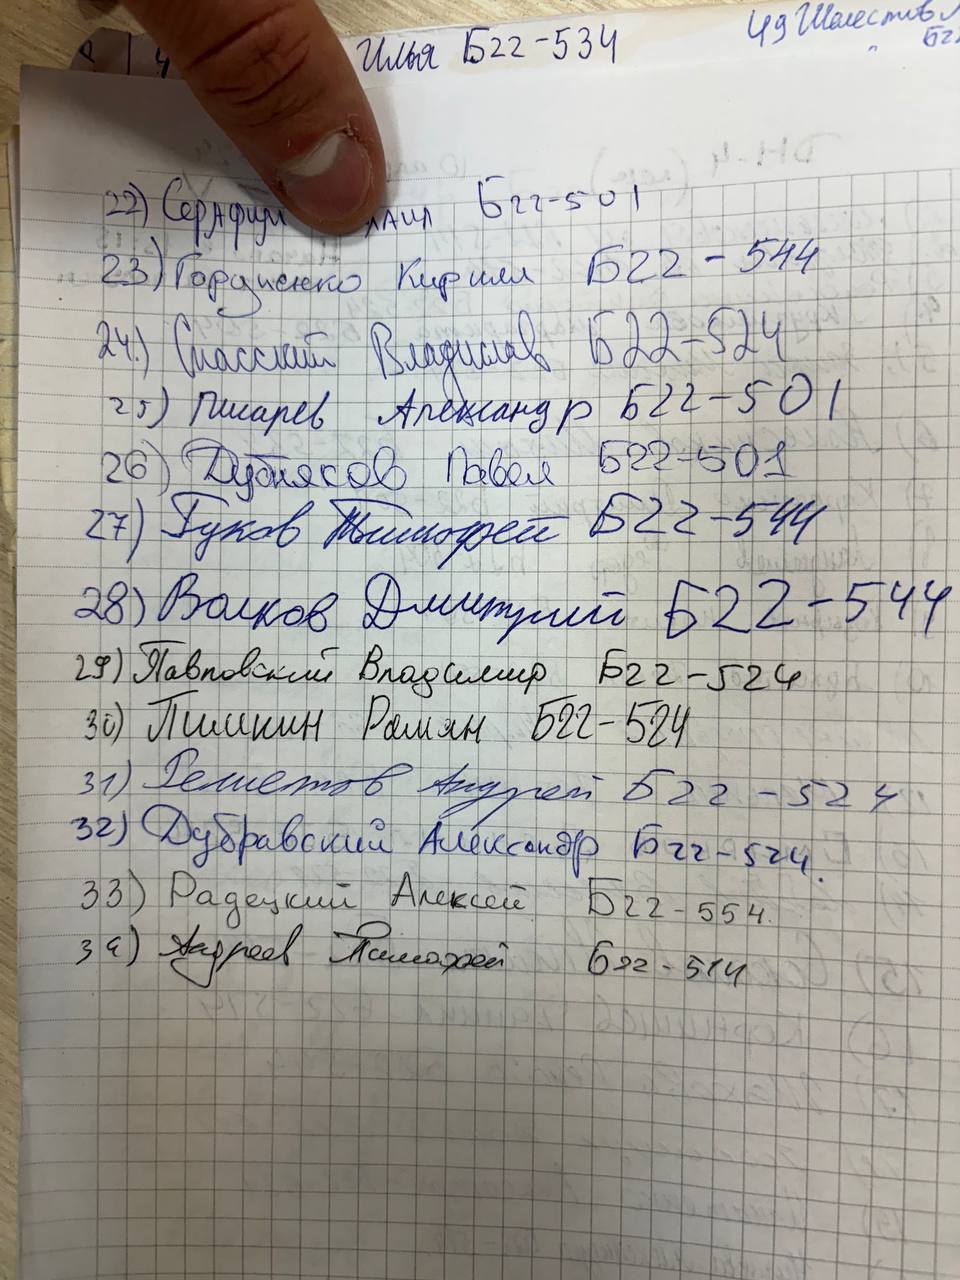 Илья Б22-534
49 Шелестов
22) Б22-501
23) Гордиенко Кирилл Б22-544
24.) Спасский Владислав Б22-524
25) Писарев Александр Б22-501
26) Дубнясов Павел Б22-501
27) Гуков Тимофей Б22-544
28) Волков Дмитрий Б22-544
29) Павловский Владимир Б22-524
30) Пишкин Рамян Б22-524
31) Решетов Андрей Б22-524
32) Дубравский Александр Б22-524.
33) Радецкий Алексей Б22-554.
34) Андреев Тимофей Б22-514